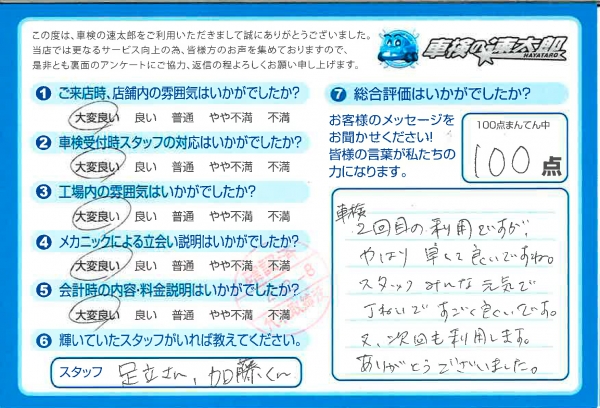 この度は、車検の速太郎をご利用いただきまして誠にありがとうございました。
当店では更なるサービス向上の為、皆様方のお声を集めておりますので、
是非とも裏面のアンケートにご協力、返信の程よろしくお願い申し上げます。
車検の速太郎
HAYATARO
1 ご来店時、店舗内の雰囲気はいかがでしたか?
大変良い 良い 普通 やや不満 不満
2 車検受付時スタッフの対応はいかがでしたか?
大変良い 良い 普通 やや不満 不満
3 工場内の雰囲気はいかがでしたか?
大変良い 良い 普通 やや不満 不満
4 メカニックによる立会い説明はいかがでしたか?
大変良い 良い 普通 やや不満 不満
5 会計時の内容・料金説明はいかがでしたか?
大変良い 良い 普通 やや不満 不満
6 輝いていたスタッフがいれば教えてください。
スタッフ 足立さん、加藤くん
7 総合評価はいかがでしたか?
お客様のメッセージを
お聞かせください!
皆様の言葉が私たちの
力になります。
100点まんてん中
100点
車検
2回目の利用ですが、
やはり早くて良いですね。
スタッフみんな元気で
丁ねいですごく良いです。
又、次回も利用します。
ありがとうございました。